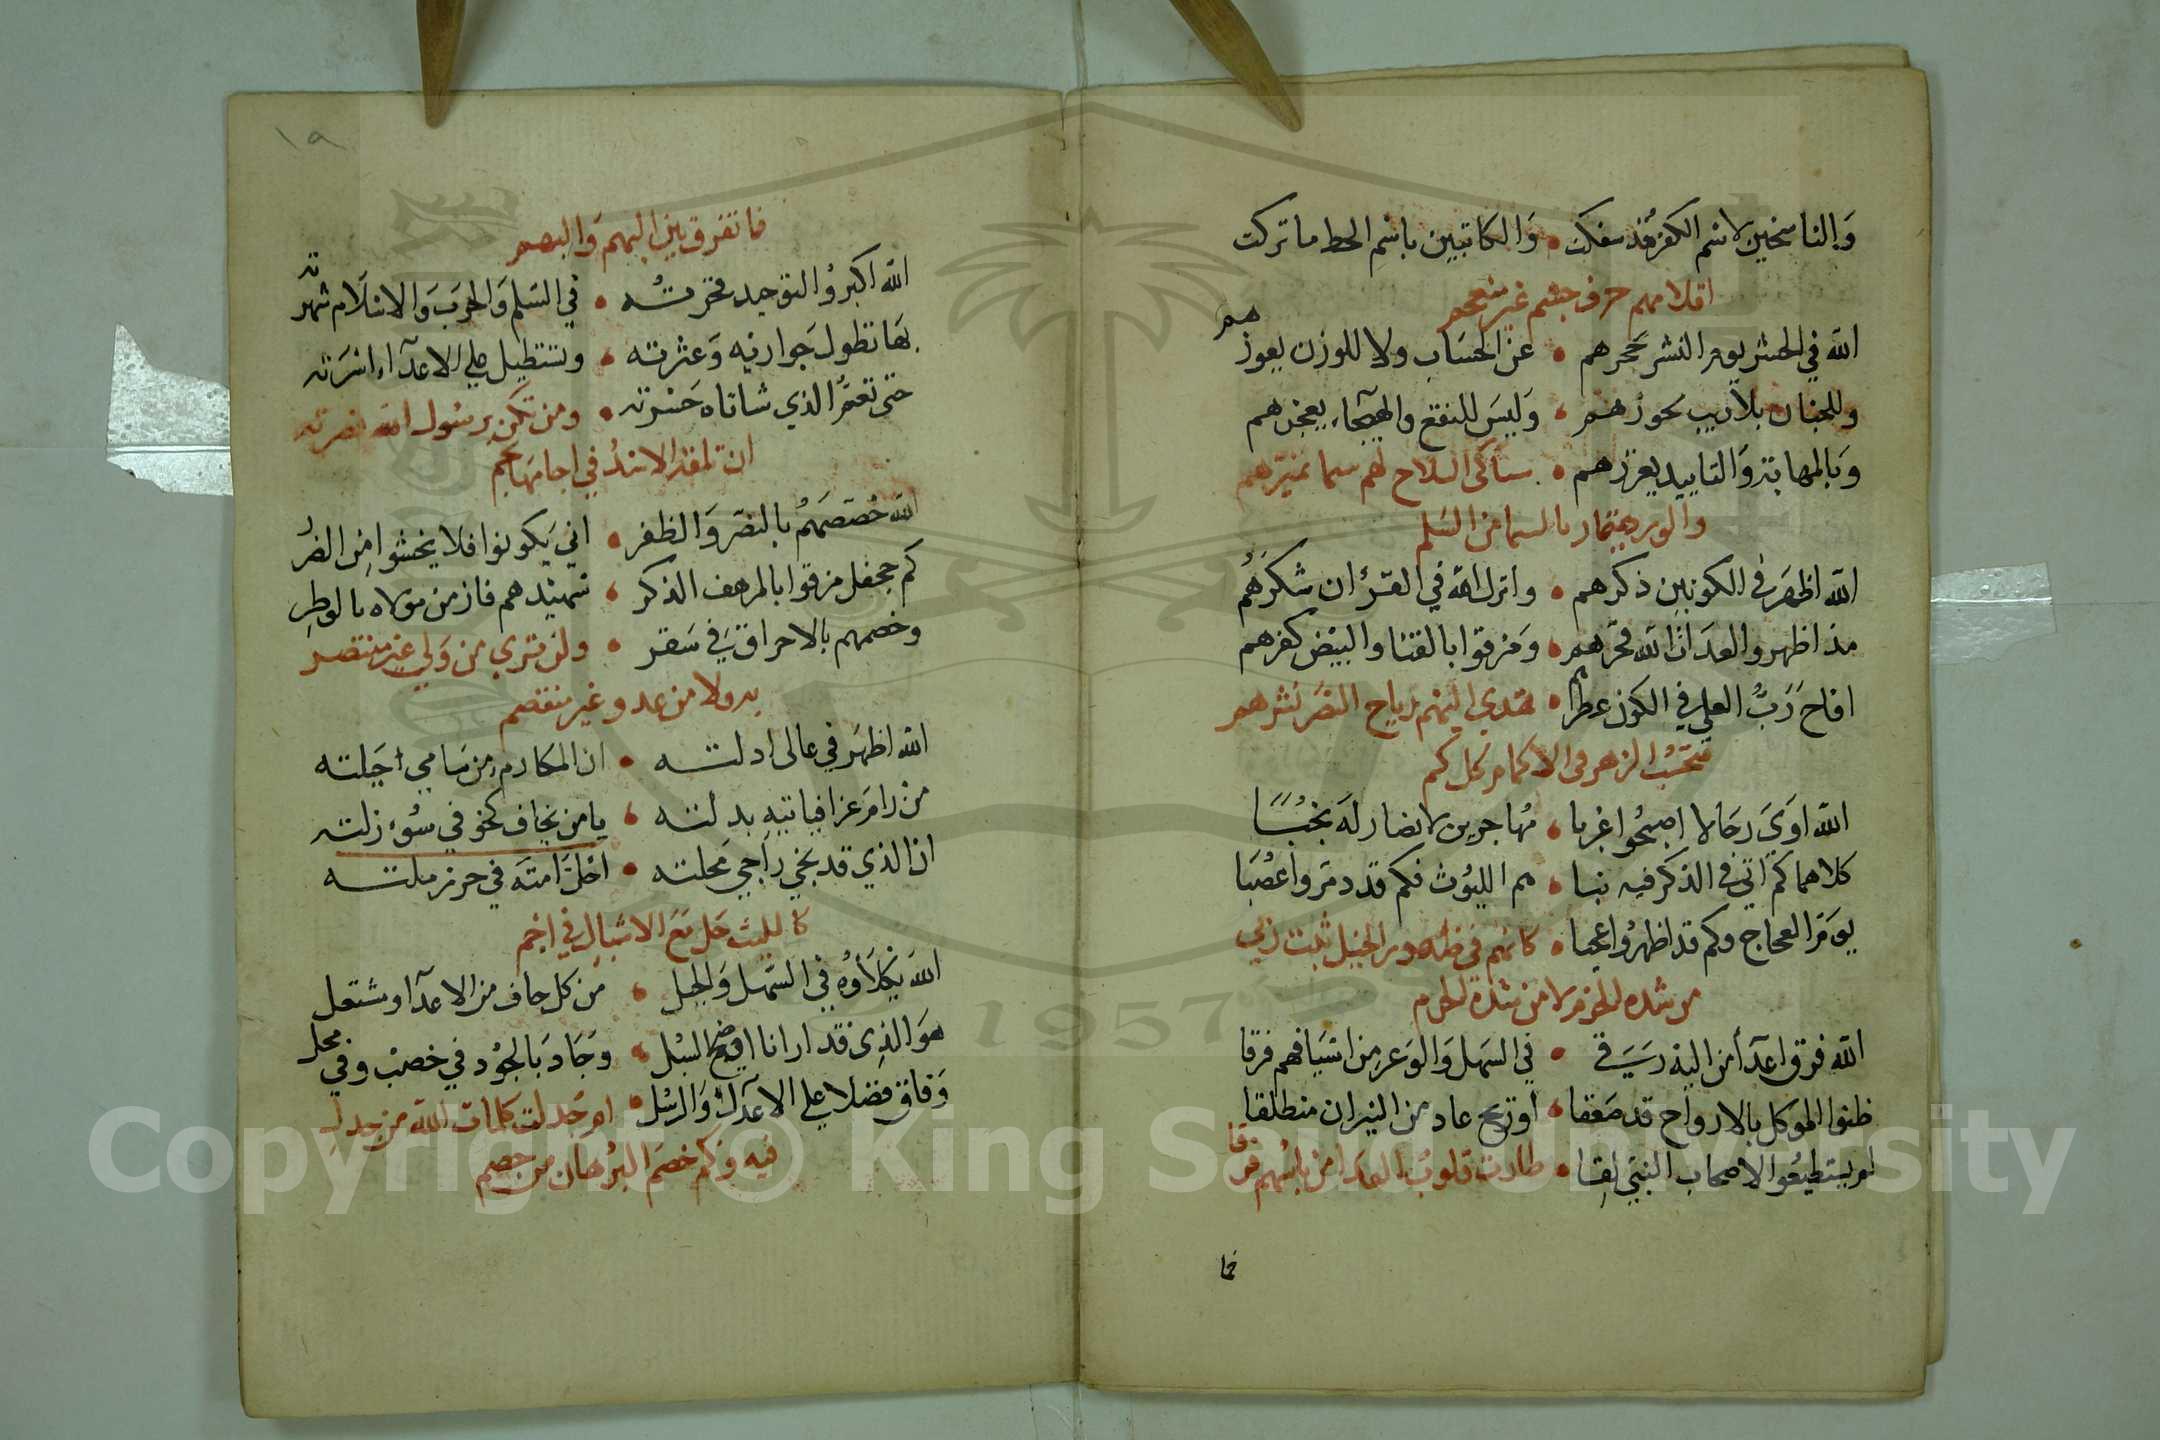 والناسخين لاسم الكفر قد سفكت • والكاتبين باسم الخط ما تركت
اقلامهم حرف جسم غير منعجم
الله في الحشر يوم النشر يحرزهم • عن الحساب ولا للوزن يعوزهم
وللجنان بلا ريب يحوزهم • وليس للنقع والهيجاء يعجزهم
وبالمهابة والتاييد يعززهم • شاكى السلاح لهم سيما تميزهم
والورد يمتاز بالسيما من السلم
الله اظهر في الكونين ذكرهم • وانزل الله في القرءان شكرهم
مذ اظهروا العدا الله فخرهم • ومزقوا بالقنا والبيض كفرهم
افاح رب العلي في الكون عطرهم • تهدي اليهم رياح النصر نشرهم
فتحسب الزهر في الاكمام كل كم
الله اوى رجالا اصبحوا غربا • مهاجرين لانصار له نجبا
كلاهما كم اتى في الذكر فيه نبا • هم الليوث فكم قد دمروا عصبا
يوم العجاج وكم قد اظهروا عجبا • كانهم في ظهور الخيل نبت ربي
من شدة الحزم لا من شدة الحزم
الله فرق اعدا من اليه رقي • في السهل والوعر من اسيافهم فرقا
ظنوا الموكل بالارواح قد صعقا • او ريح عاد من النيران منطلقا
لم يستطيعوا لاصحاب النبي لقا • طارت قلوب العدا من باسهم فرقا
فما
١٩
فما تفرق بين البهم والبهم
الله اكبر والتوحيد فخرته • في السلم والحرب والاسلام شهرته
بها تطول جواريه وعثرته • وتستطيل على الاعداء اسرته
حتى تعم الذي شاناه حسرته • ومن تكن برسول الله نصرته
ان تلقه الاسد في اجامها تجم
الله خصصهم بالنصر والظفر • اني يكونوا فلا يخشوا من الضرر
كم جحفل مزقوا بالمرهف الذكر • شهيدهم فاز من مولاه بالوطر
وخصمهم بالاحراق في سقر • ولن ترى من ولي غير منتصر
به ولا من عدو غير منقصم
الله اظهر في عالى ادلته • ان المكارم من سامي اجيلته
من رام عزا فياتيه بدلته • يا من يخاف نحو في سوء زلته
ان الذي قد نجي راجي محلته • احل امته في حرز ملته
كالليث حل مع الاشبال في اجم
الله يكلأوه في السهل والجبل • من كل جاف من الاعدآ ومشتعل
هو الذي قد ارانا اوضح السبل • وجاد بالجود في خصب وفي محل
وفاق فضلا على الاعدآء والرسل • كم جدلت كلمات الله من جدل
فيه وكم خصم البرهان من خصم
Copyright © King Saud University
1957